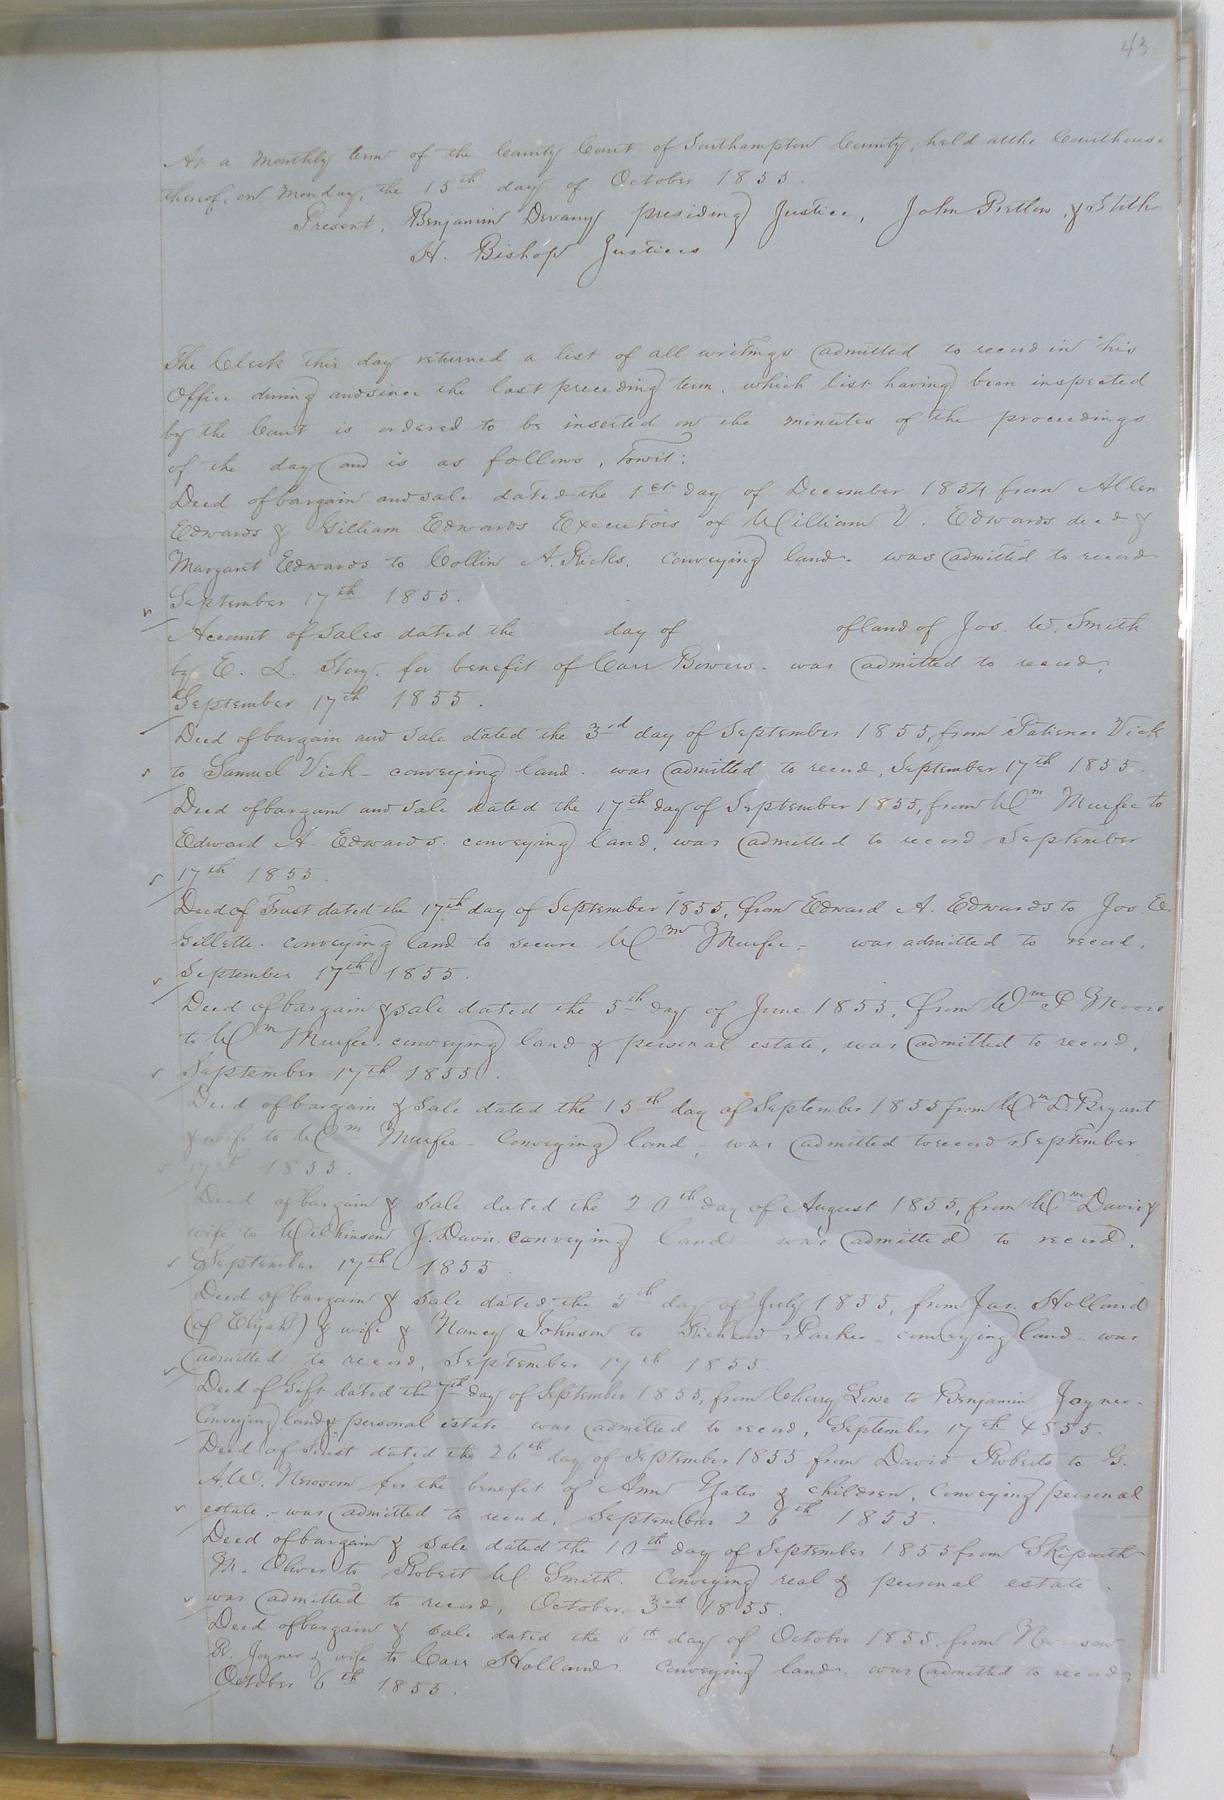 43
At a Monthly term of the County Court of Southampton County, held at the Courthouse
thereof, on Monday, the 15th day of October 1855.
Present, Benjamin Devany presiding Justice, John Pretlow, & Stith
H. Bishop Justices
The Clerk this day returned a list of all writings admitted to record in his
Office during and since the last preceding term, which list having been inspected
by the Court is ordered to be inserted on the minutes of the proceedings
of the day and is as follows, Towit:
Deed of bargain and sale dated the 1st day of December 1854 from Allen
Edwards & Gilliam Edwards Executors of William V. Edwards decd. &
Margaret Edwards to Collin A. Ricks, conveying land. was admitted to record
September 17th 1855.
Account of Sales dated the day of of land of Jos. W. Smith
by E. L. Story. for benefit of Carr Bowers. was admitted to record,
September 17th 1855.
Deed of bargain and Sale dated the 3rd day of September 1855, from Patience Vick
to Samuel Vick - conveying land. was admitted to record, September 17th 1855.
Deed of bargain and Sale dated the 17th day of September 1855, from Wm Murfee to
Edward A. Edwards. conveying land, was admitted to record September
17th 1855.
Deed of Trust dated the 17th day of September 1855, from Edward A. Edwards to Jos E.
Gillette. conveying land to secure Wm Murfee - was admitted to record,
September 17th 1855.
Deed of bargain & sale dated the 5th day of June 1855, from Wm P Moore
to Wm Murfee. conveying land & personal estate, was admitted to record,
September 17th 1855.
Deed of bargain & Sale dated the 15th day of September 1855 from Wm D. Bryant
& wife to Wm Murfee - Conveying land, was admitted to record September
17th 1855.
Deed of bargain & Sale dated the 20th day of August 1855, from Wm Davis &
wife to Wilkinson J. Davis. conveying land - was admitted to record,
September 17th 1855.
Deed of bargain & Sale dated the 5th day of July 1855, from Jas. Holland
(of Elijah) & wife & Nancy Johnson to Richard Parker - conveying land - was
admitted to record, September 17th 1855.
Deed of Gift dated the 7th day of September 1855, from Cherry Lowe to Benjamin Joyner.
Conveying land & personal estate. was admitted to record, September 17th 1855.
Deed of Trust dated the 26th day of September 1855 from David Roberts to G.
A. W. Newsom for the benefit of Ann Yates & children, conveying personal
estate - was admitted to record, September 26th 1855.
Deed of bargain & Sale dated the 10th day of September 1855 from Skipwith
M. Oliver to Robert W. Smith. Conveying real & personal estate.
was admitted to record, October 3rd 1855.
Deed of bargain & Sale dated the 6th day of October 1855 from Newsom
R. Joyner & wife to Carr Holland. Conveying land. was admitted to record
October 6th 1855.